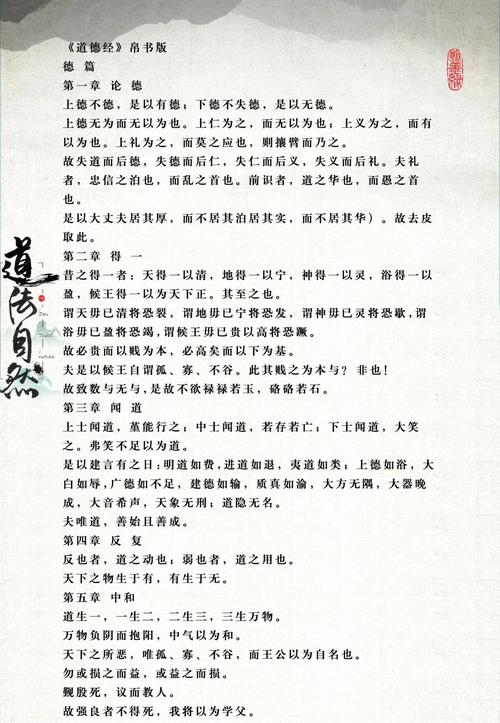 《道德经》帛书版
德 篇
第一章 论 德
上德不德，是以有德；下德不失德，是以无德。
上德无为而无以为也。上仁为之，而无以为也；上义为之，而有
以为也。上礼为之，而莫之应也，则攘臂而乃之。
故失道而后德，失德而后仁，失仁而后义，失义而后礼。夫礼
者，忠信之泊也，而乱之首也。前识者，道之华也，而愚之首
也。
是以大丈夫居其厚，而不居其泊居其实，而不居其华）。故去皮
取此。
第二章 得 一
昔之得一者：天得一以清，地得一以宁，神得一以灵，浴得一以
盈，候王得一以为天下正。其至之也。
谓天毋已清将恐裂，谓地毋已宁将恐发，谓神毋已灵将恐歇，谓
浴毋已盈将恐竭，谓候王毋已贵以高将恐蹶。
故必贵而以贱为本，必高矣而以下为基。
夫是以候王自谓孤、寡、不谷。此其贱之为本与？非也！
故致数与无与，是故不欲禄禄若玉，硌硌若石。
第三章 闻 道
上士闻道，堇能行之；中士闻道，若存若亡；下士闻道，大笑
之。弗笑不足以为道。
是以建言有之曰：明道如费，进道如退，夷道如类；上德如浴，大
白如辱，广德如不足，建德如输，质真如渝，大方无隅，大器晚
成，大音希声，天象无刑；道隐无名。
夫唯道，善始且善成。
第四章 反 复
反也者，道之动也；弱也者，道之用也。
天下之物生于有，有生于无。
第五章 中和
道生一，一生二，二生三，三生万物。
万物负阴而抱阳，中气以为和。
天下之所恶，唯孤、寡、不谷，而王公以为自名也。
勿或损之而益，或益之而损。
觐殷死，议而教人。
故强良者不得死，我将以为学父。
道法自然
Zen
nature